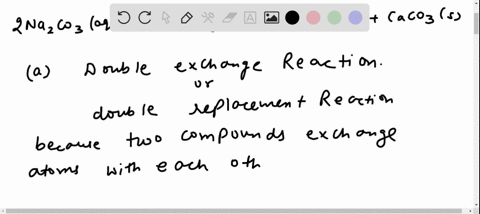 2Na₂CO₃ (aq + CaCO₃ (s)
(a) Double exchange Reaction.
or
double replacement Reaction
because two compounds exchange
atoms with each oth